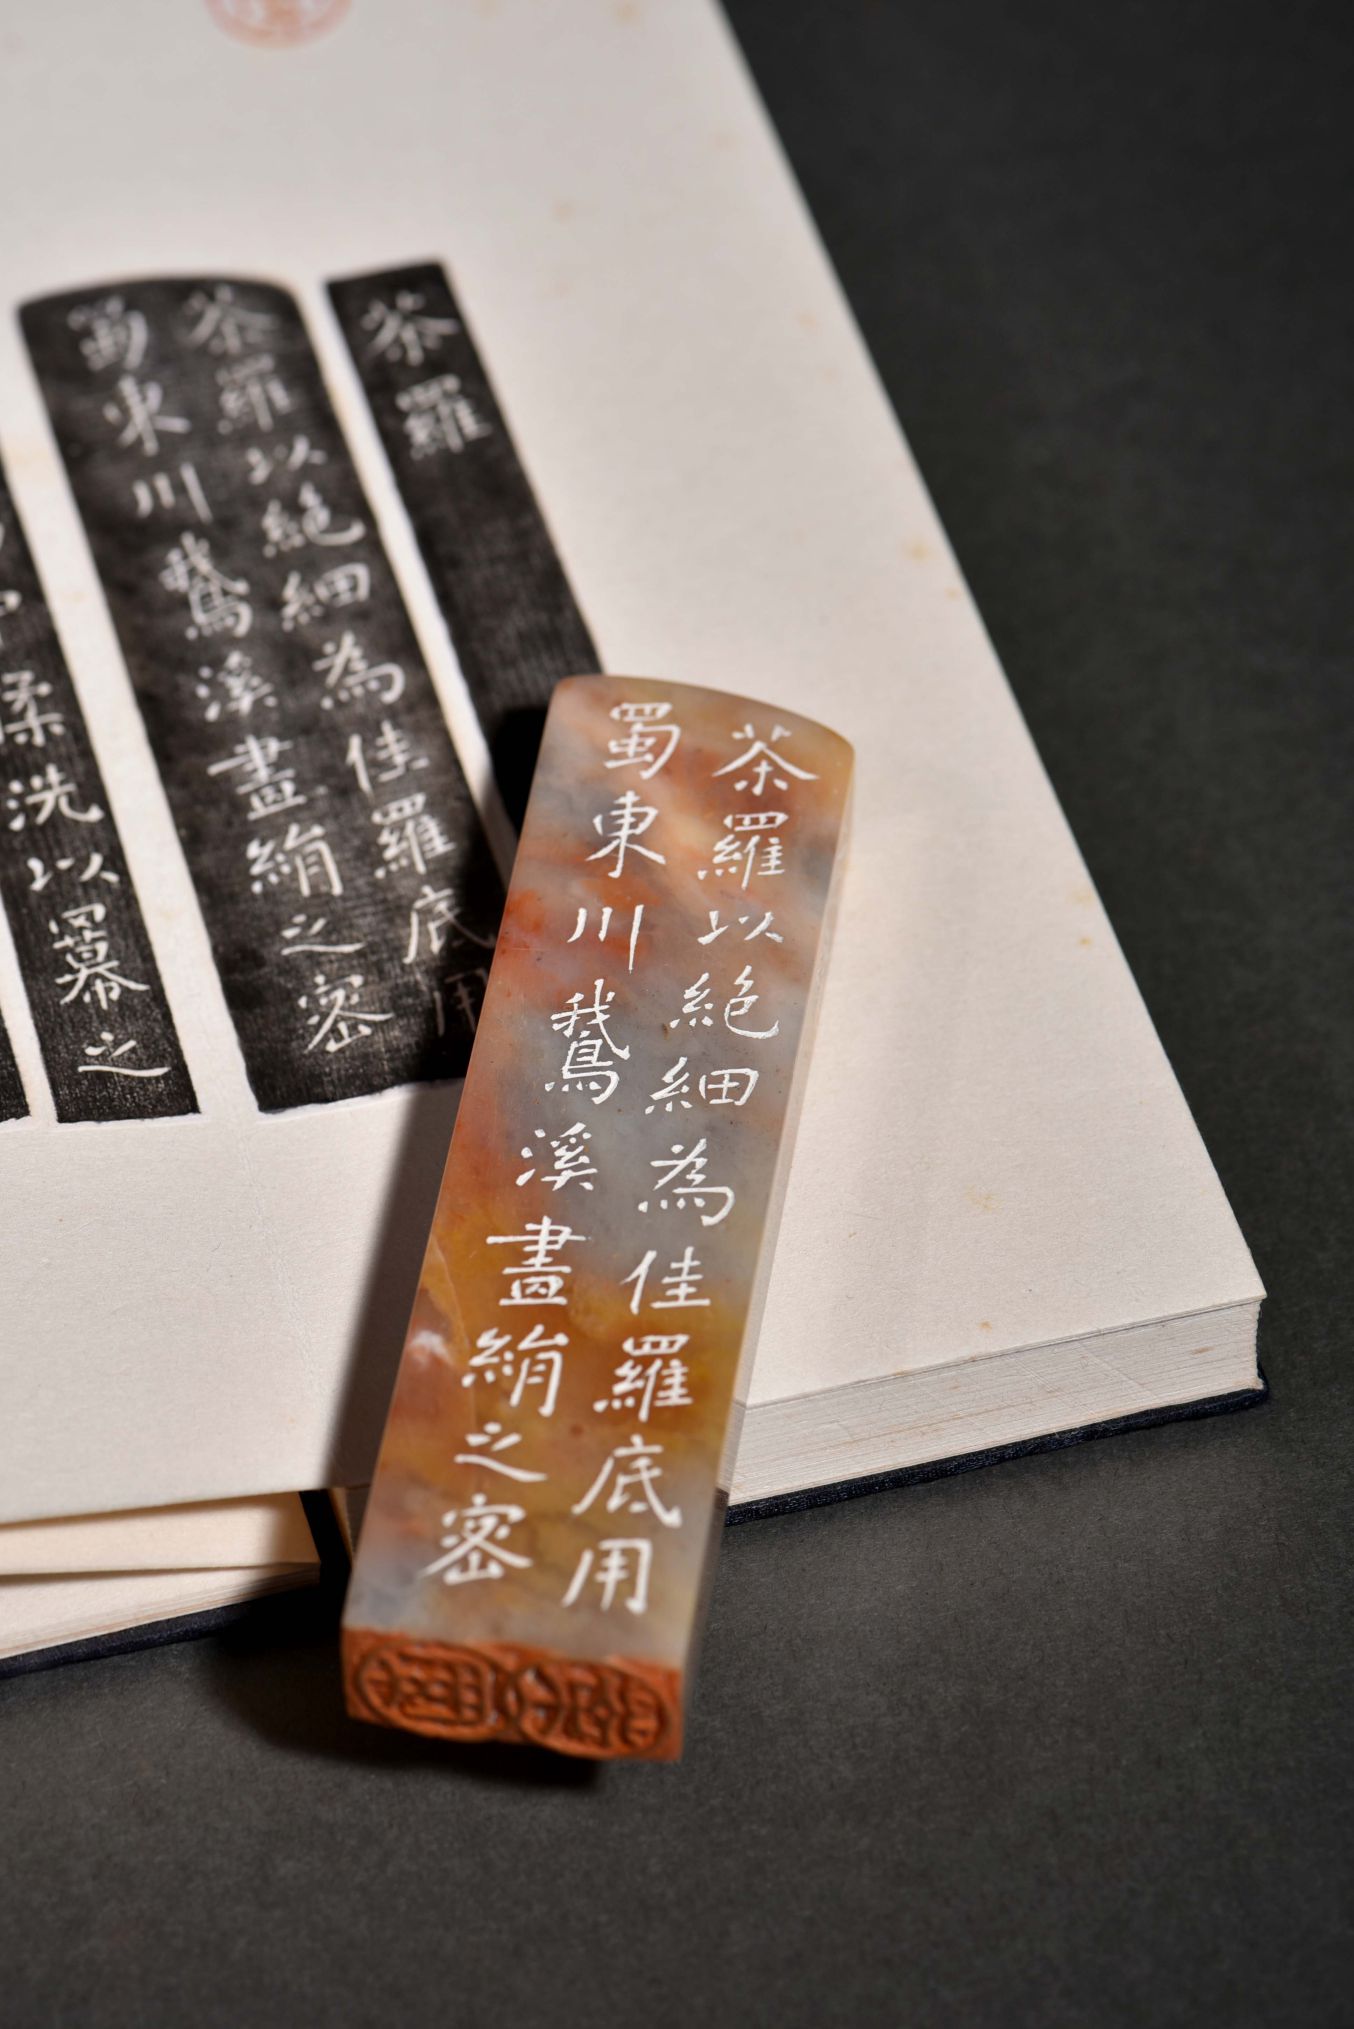 茶羅以絕細為佳羅底用
蜀東川鵞溪畫絹之密
茶羅
茶羅以絕細為佳羅底用
蜀東川鵞溪畫絹之密
揉洗以羃之